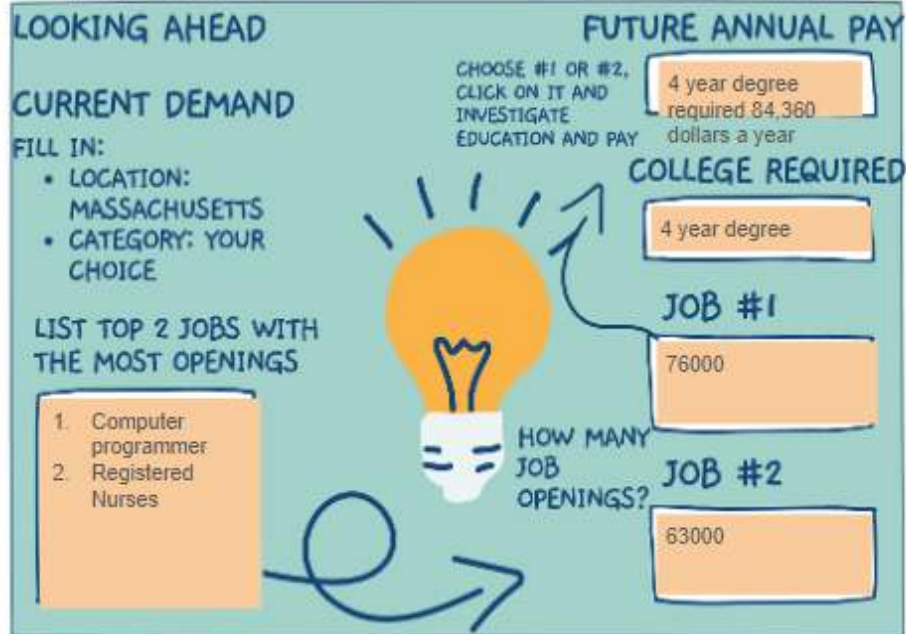 LOOKING AHEAD
CURRENT DEMAND
FILL IN:
• LOCATION:
MASSACHUSETTS
• CATEGORY: YOUR
CHOICE
LIST TOP 2 JOBS WITH
THE MOST OPENINGS
1. Computer
programmer
2. Registered
Nurses
FUTURE ANNUAL PAY
CHOOSE #1 OR #2,
CLICK ON IT AND
INVESTIGATE
EDUCATION AND PAY
4 year degree
required 84,360
dollars a year
COLLEGE REQUIRED
4 year degree
HOW MANY
JOB
OPENINGS?
JOB #1
76000
JOB #2
63000